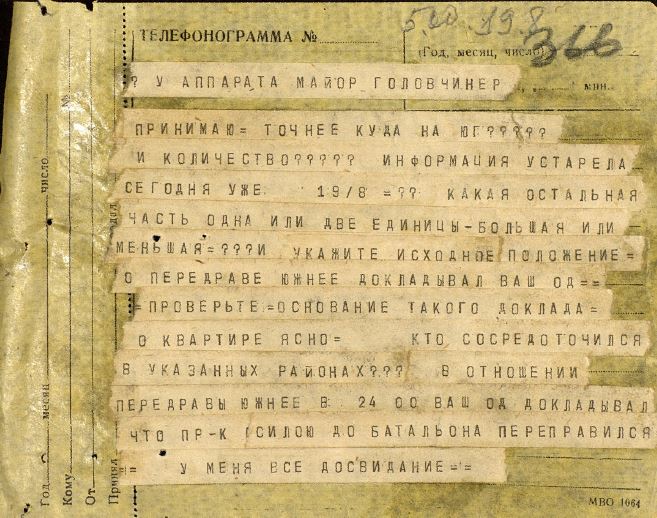 5.00 19.8
ТЕЛЕФОНОГРАММА №
366
(Год, месяц, число)
? У АППАРАТА МАЙОР ГОЛОВЧИНЕР
мин.
ПРИНИМАЮ= ТОЧНЕЕ КУДА НА ЮГ?????
И КОЛИЧЕСТВО????? ИНФОРМАЦИЯ УСТАРЕЛА
СЕГОДНЯ УЖЕ 19/8 =?? КАКАЯ ОСТАЛЬНАЯ
ЧАСТЬ ОДНА ИЛИ ДВЕ ЕДИНИЦЫ-БОЛЬШАЯ ИЛИ
МЕНЬШАЯ=???И УКАЖИТЕ ИСХОДНОЕ ПОЛОЖЕНИЕ=
О ПЕРЕДРАВЕ ЮЖНЕЕ ДОКЛАДЫВАЛ ВАШ ОД==
=ПРОВЕРЬТЕ=ОСНОВАНИЕ ТАКОГО ДОКЛАДА=
О КВАРТИРЕ ЯСНО= КТО СОСРЕДОТОЧИЛСЯ
В УКАЗАННЫХ РАЙОНАХ??? В ОТНОШЕНИИ
ПЕРЕДРАВЫ ЮЖНЕЕ В 24 00 ВАШ ОД ДОКЛАДЫВАЛ
ЧТО ПР-К (СИЛОЮ ДО БАТАЛЬОНА ПЕРЕПРАВИЛСЯ
= У МЕНЯ ВСЕ ДОСВИДАНИЕ==
МВО 1064
число
месяц
Год
№
Кому
От
Принял